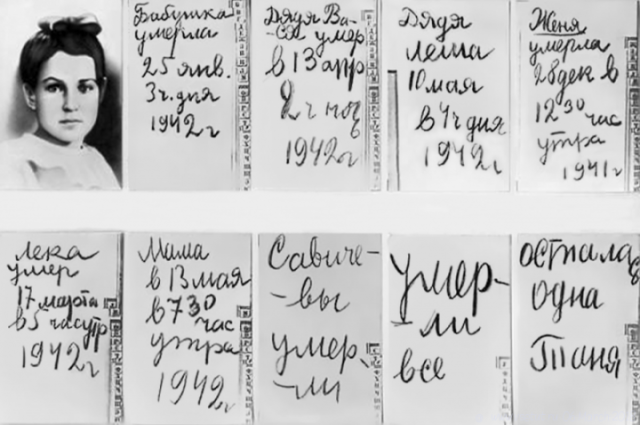 Бабушка
умерла
25 янв.
3 ч. дня
1942 г
Дядя Ва-
ся умер
в 13 апр
2 ч ноч
1942 г
Дядя
Леша
10 мая
в 4 ч дня
1942 г
Женя
умерла
28 дек в
12 30 час
утра
1941 г
Лека
умер
17 марта
в 5 час утр
1942 г
Мама
в 13 мая
в 7 30
час
утра
1942 г
Савиче-
-вы
умер-
-ли
умер-
-ли
все
осталась
одна
Таня